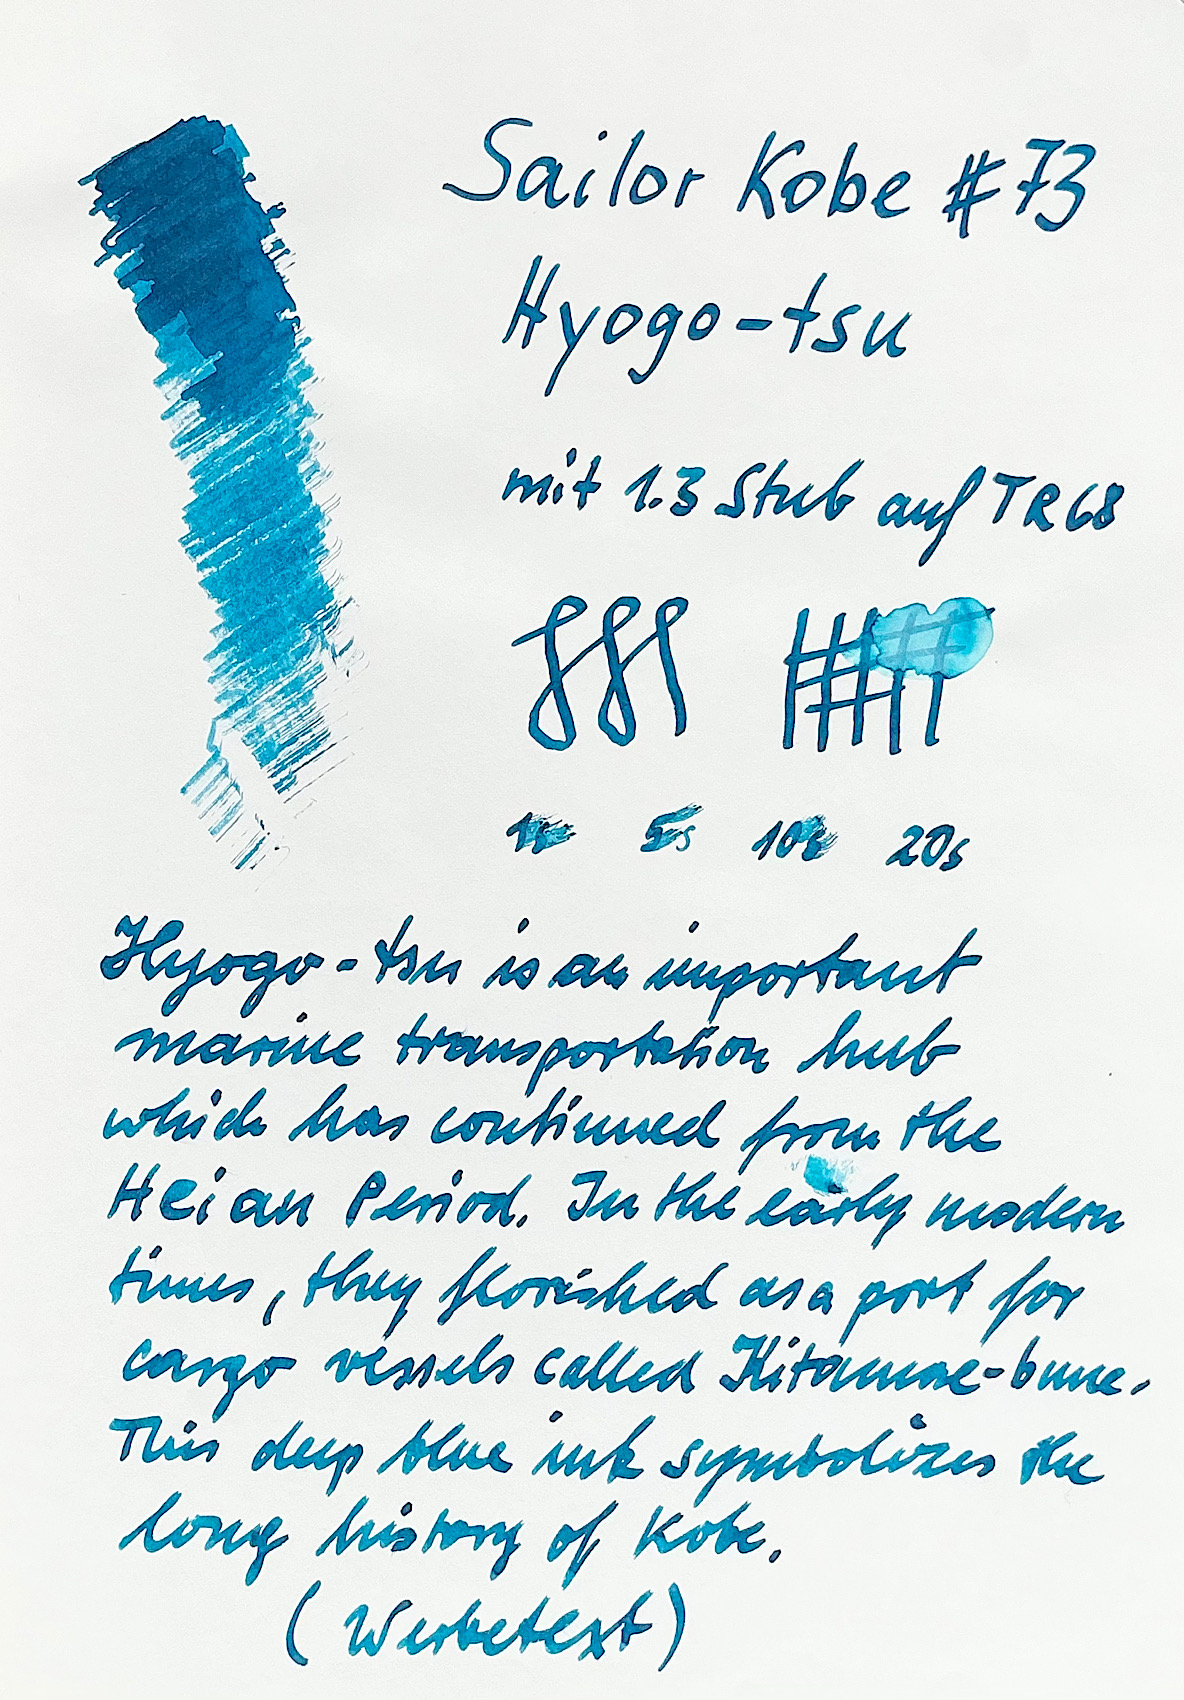 Sailor Kobe #73
Hyogo-tsu
mit 1.3 Stub auf TR68
1s 5s 10s 20s
Hyogo-tsu is an important
marine transportation hub
which has continued from the
Heian Period. In the early modern
times, they florished as a port for
cargo vessels called Kitamae-bune.
This deep blue ink symbolizes the
long history of Kobe.
(Werbetext)